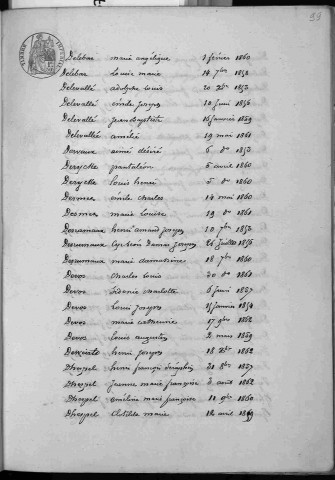 99
Delebar marie angélique 1 février 1860
Delebar louise marie 14 7bre 1852
Delevallé adolphe louis 20 Xbre 1853
Delevallé émile joseph 10 juin 1856
Delevallé jean baptiste 16 janvier 1859
Delevallée amélie 19 mai 1861
Dervaux aimé désiré 6 do 1853
Derycke pantaléon 5 avril 1860
Derycke louis henri 5 do 1860
Desmes émile charles 14 mai 1860
Desmes marie louise 19 do 1861
Desrumaux henri amand joseph 10 7bre 1853
Desrumaux joseph 26 juillet 1856
Desrumaux marie 18 7bre 1860
Devos charles louis 20 do 1861
Devos sidonie charlotte 6 juin 1857
Devos louis joseph 15 janvier 1854
Devos marie catherine 17 9bre 1862
Devos louis augustin 2 mars 1859
henri joseph 18 Xbre 1862
Dhespel henri françois 21 8bre 1857
Dhespel jeanne marie françoise 3 août 1862
Dhespel émeline marie françoise 11 9bre 1860
Dhespel clotilde marie 12 avril 1859